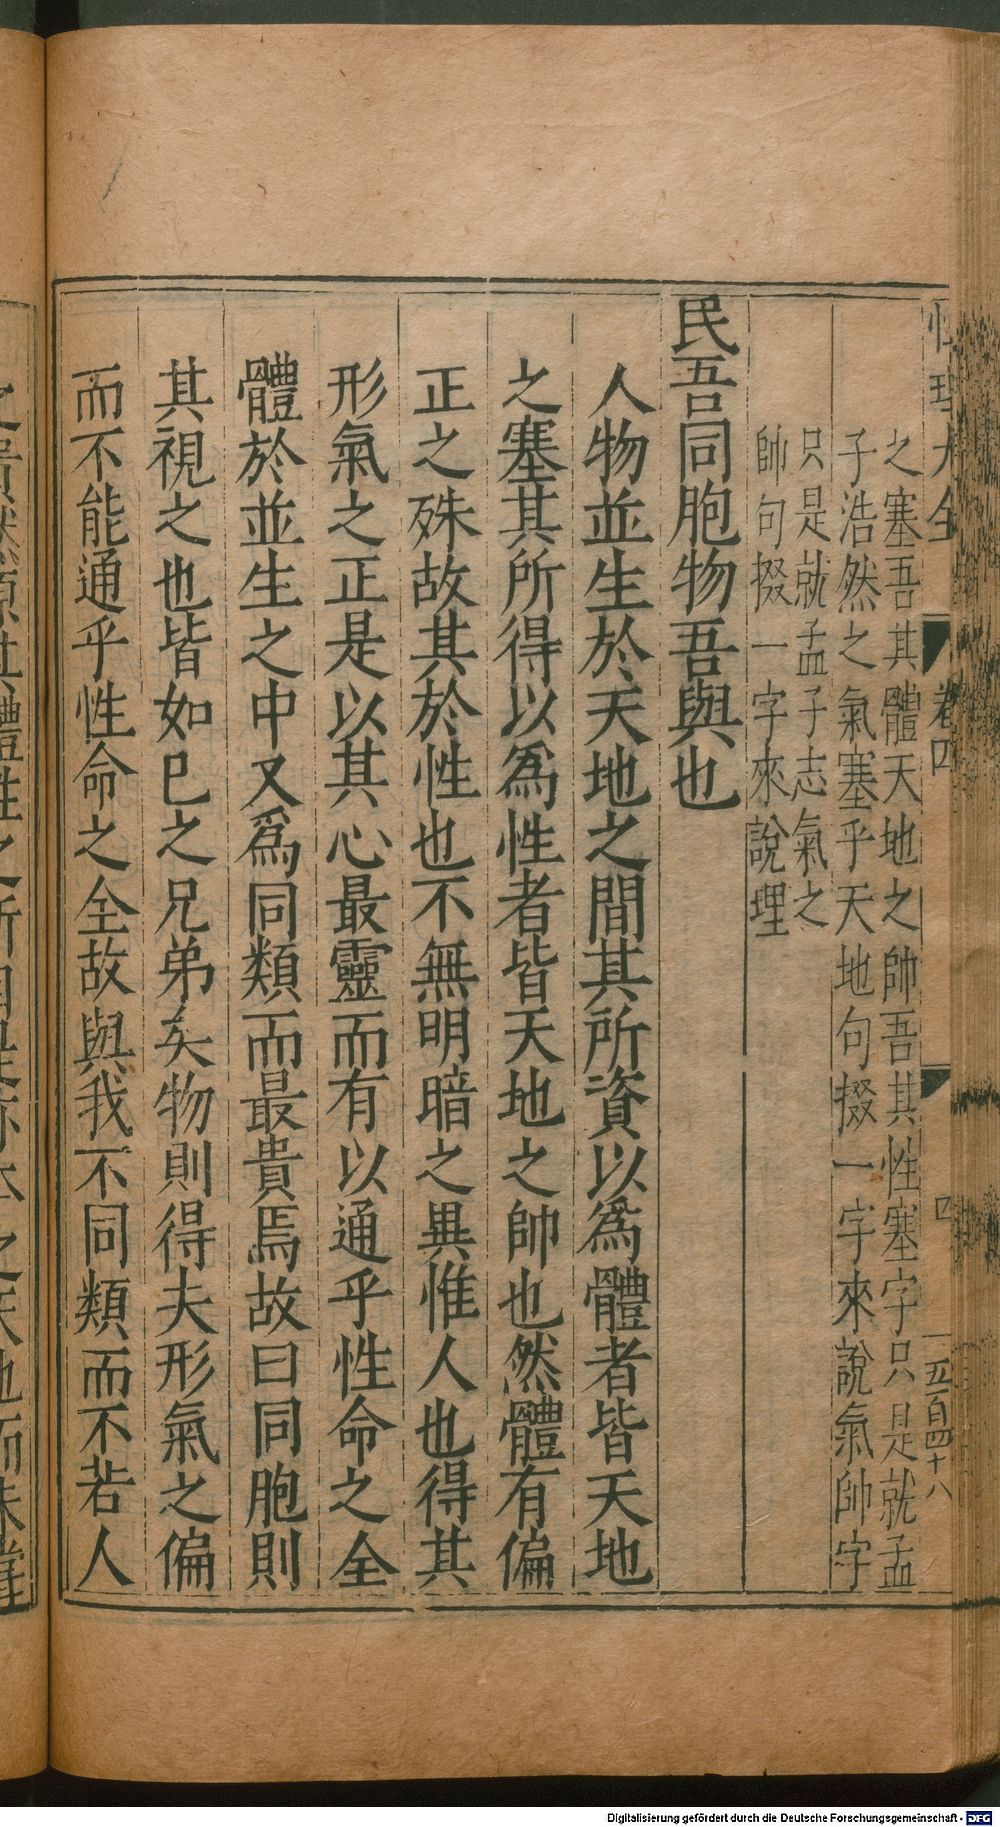 性理大全 卷四 四 一五百四十八
之塞吾其體天地之帥吾其性塞字只是就孟
子浩然之氣塞乎天地句掇一字來說氣帥字
只是就孟子志氣之
帥句掇一字來說理
民吾同胞物吾與也
人物並生於天地之間其所資以爲體者皆天地
之塞其所得以爲性者皆天地之帥也然體有偏
正之殊故其於性也不無明暗之異惟人也得其
形氣之正是以其心最靈而有以通乎性命之全
體於並生之中又爲同類而最貴焉故曰同胞則
其視之也皆如己之兄弟矣物則得夫形氣之偏
而不能通乎性命之全故與我不同類而不若人
Digitalisierung gefördert durch die Deutsche Forschungsgemeinschaft - DFG